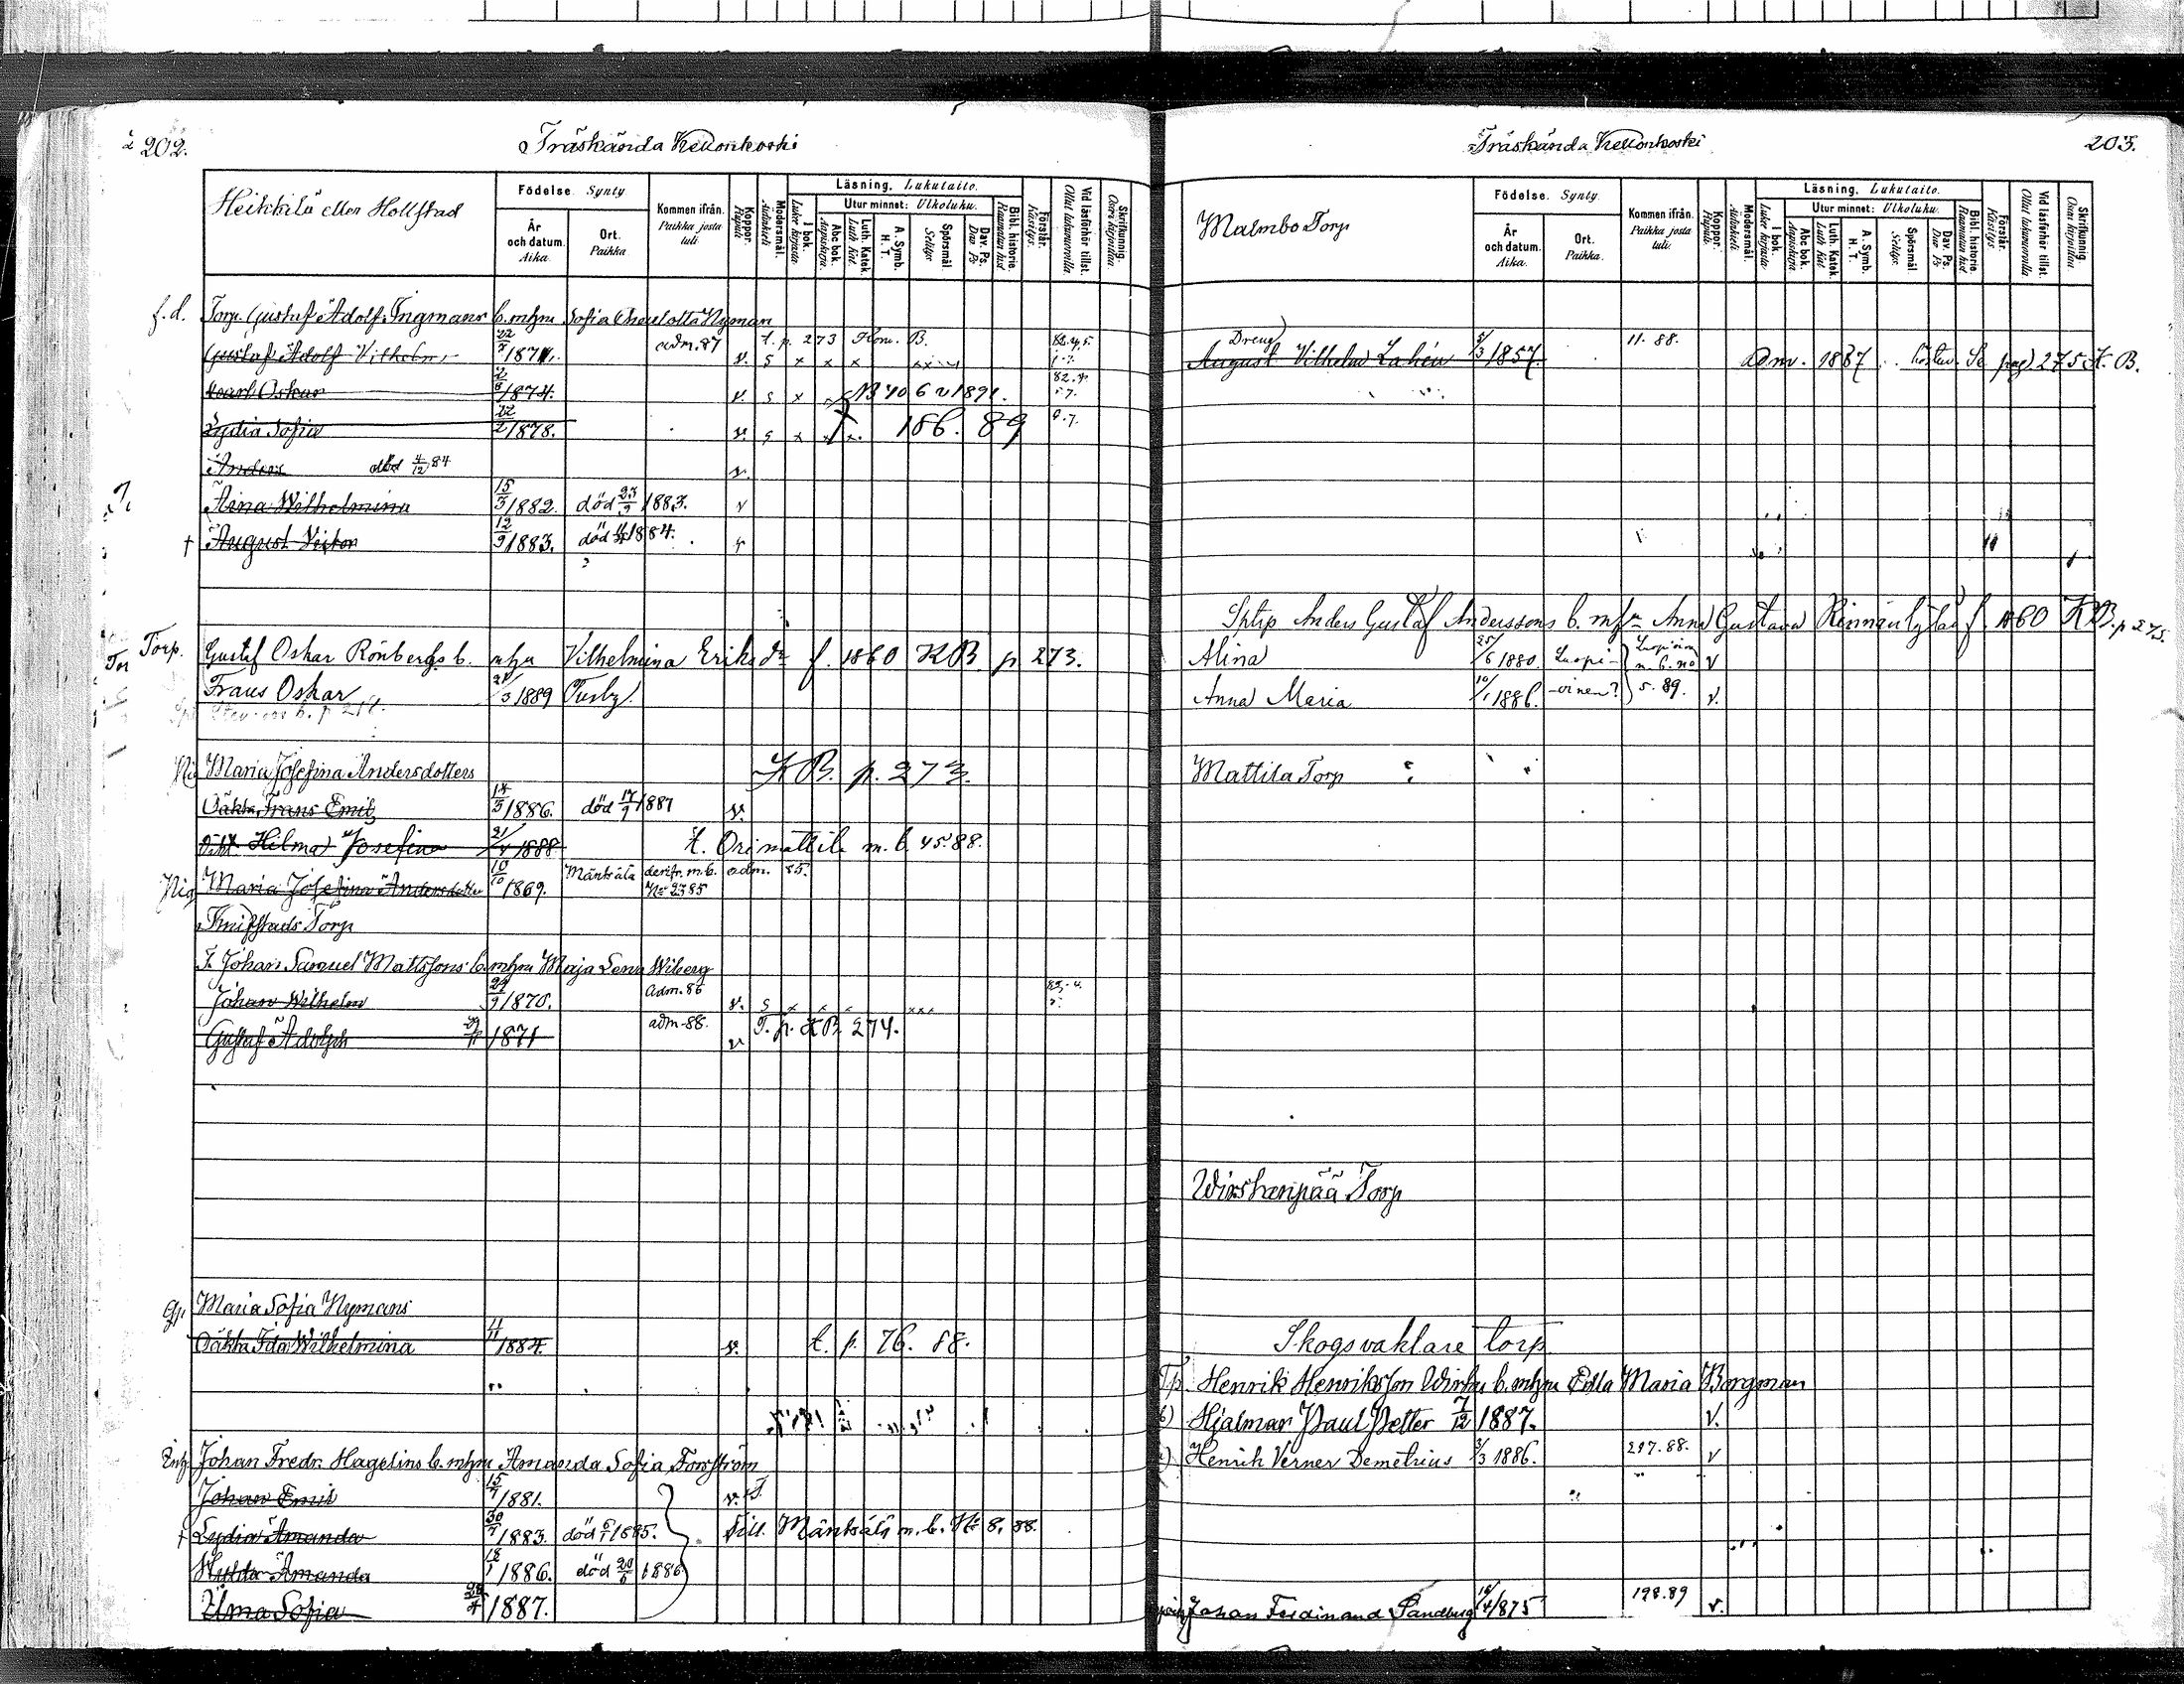 202.
Träskända Kellonkoski
Heikkilä eller Hollstad
Födelse. Synty
År och datum. Aika.
Ort. Paikka.
Kommen ifrån. Paikka josta tuli
Koppor. Rupuli.
Modersmål. Äidinkieli
Läsning. Lukutaito.
I bok. Lukee kirjasta.
Utur minnet: Ulkoluku.
Abc bok. Aapiskirja.
Luth. Katek. Luth Kat.
A. Symb. H. T.
Spörsmål. Selitys.
Dav. Ps. Dav Ps
Bibl. historie. Raamatun hist
Förstår. Käsitys.
Vid läsförhör tillst. Ollut lukuvuorolla
Skrifkunnig. Osaa kirjoittaa.
f.d. Torp. Gustaf Adolf Ingmans b. m hju Sofia Charlotta Nyman
Gustaf Adolf Vilhelm 1871. adm. 87 t. p. 273 Kom. B.
Karl Oskar 1874. v. s x
Lydia Sofia 22/2 1878. v. s x x x. 186. 89
Anders död 4/12 84 v.
Aina Wilhelmina 15/3 1882. död 23/9 1883. v
† August Victor 12/9 1883. död 1884.
Torp. Gustaf Oskar Rönbergs b. mhju Vilhelmina Eriksdr f. 1860 KB p 273.
Frans Oskar 21/3 1889 Tusby.
Maria Josefina Andersdotters KB. p. 273.
Oäkta Frans Emil 14/5 1886. död 17/9 1887 v.
Oäkt Hilma Josefina 21/4 1888 t. Orimattila m. b. 45. 88.
Pig Maria Josefina Andersdotter 10/10 1869. Mäntsälä derifr. m.b. adm. 85.
Knifstads Torp
T. Johan Samuel Mattssons b. mhju Maja Lena Wiberg
Johan Wilhelm 29/9 1870. adm. 86 v. s x x x xxx
Gustaf Adolph 1871 adm-88. v T. p. KB 274.
Maria Sofia Nymans
Oäkta Ida Wilhelmina 1884 v. t. p. 76. 88.
Johan Fredr. Hagelins b. mhju Amanda Sofia Forsström
Johan Emil 15/7 1881. v.
† Lydia Amanda 30/7 1883. död 6/1 1885. till Mäntsälä m. b. No 8. 88.
Hulda Amanda 18/1 1886. död 20/6 1886
Alma Sofia 1887.
203.
Träskända Kellonkoski
Malmbo Torp
Födelse. Synty.
År och datum. Aika.
Ort. Paikka.
Kommen ifrån. Paikka josta tuli.
Koppor. Rupuli.
Modersmål. Äidinkieli.
Läsning. Lukutaito.
I bok. Lukee kirjasta
Utur minnet: Ulkoluku.
Abc bok. Aapiskirja
Luth. Katek. Luth Kat.
A. Symb. H. T.
Spörsmål Selitys.
Dav. Ps. Dav Ps
Bibl. historie Raamatun hist
Förstår. Käsitys
Vid läsförhör tillst. Ollut lukuvuorolla
Skrifkunnig. Osaa kirjoittaa
Dreng
August Vilhelm Lahén 1857. 11. 88. adm. 1887 pag 275 K. B.
Anders Gustaf Anderssons b. mhu Anna Gustava f. 1860 KB. p 275.
Alina 25/6 1880. v
Anna Maria 10/1 1886. 5. 89. v.
Mattila Torp
Wirshanpää Torp
Skogsvaktare torp
Tp. Henrik Henriksson b. mhju Edla Maria Borgman
Hjalmar Paul Petter 7/12 1887. v.
Henrik Verner Demetrius 3/3 1886. 297. 88. v
Johan Ferdinand Sandberg 1875 198. 89 v.